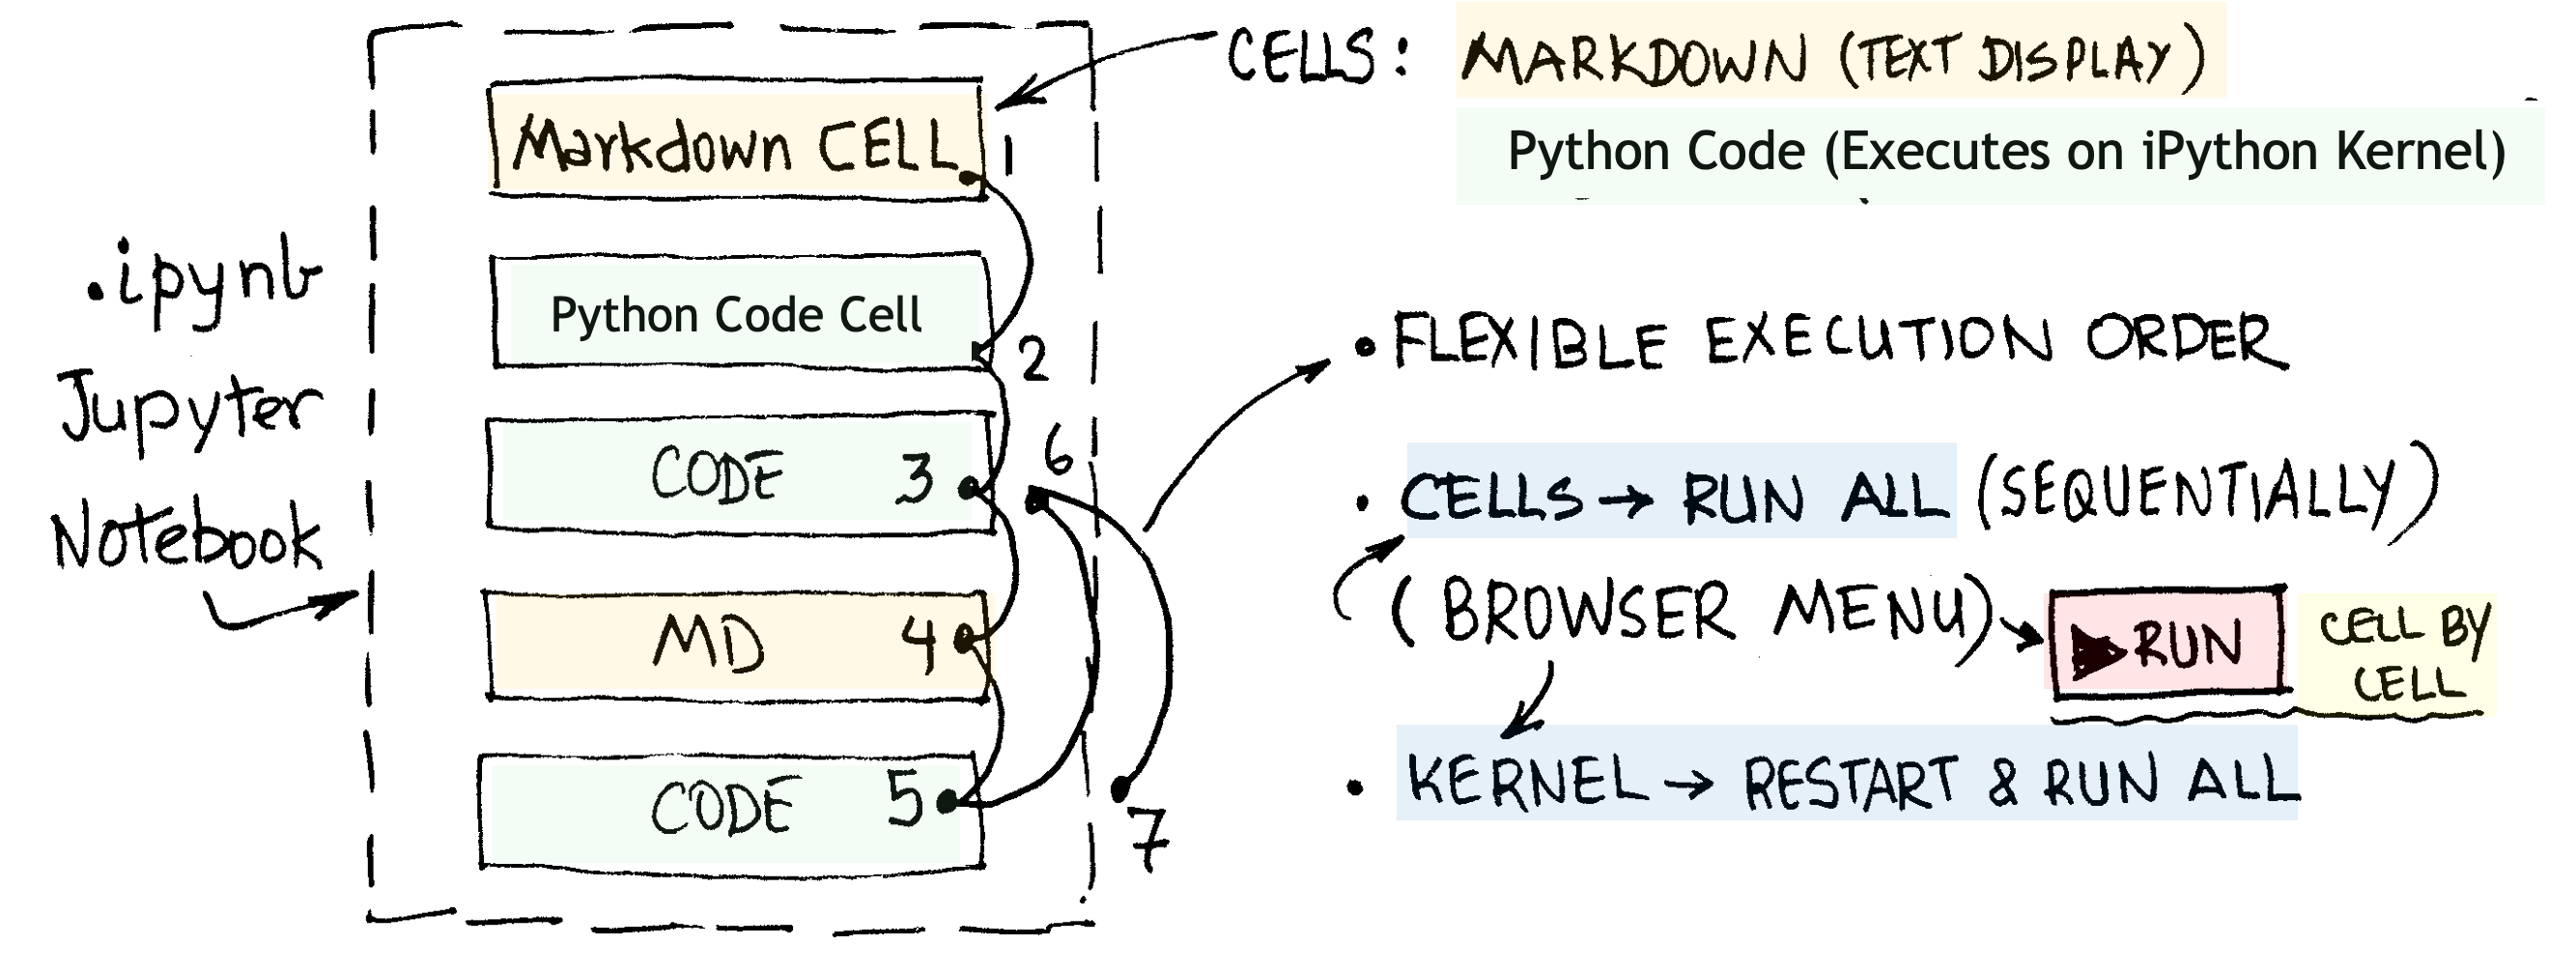 .ipynb
Jupyter
Notebook
Markdown CELL
1
Python Code Cell
2
CODE 3
6
MD 4
CODE 5
7
CELLS: MARKDOWN (TEXT DISPLAY)
Python Code (Executes on iPython Kernel)
• FLEXIBLE EXECUTION ORDER
• CELLS → RUN ALL (SEQUENTIALLY)
(BROWSER MENU)
▶ RUN
CELL BY
CELL
• KERNEL → RESTART & RUN ALL